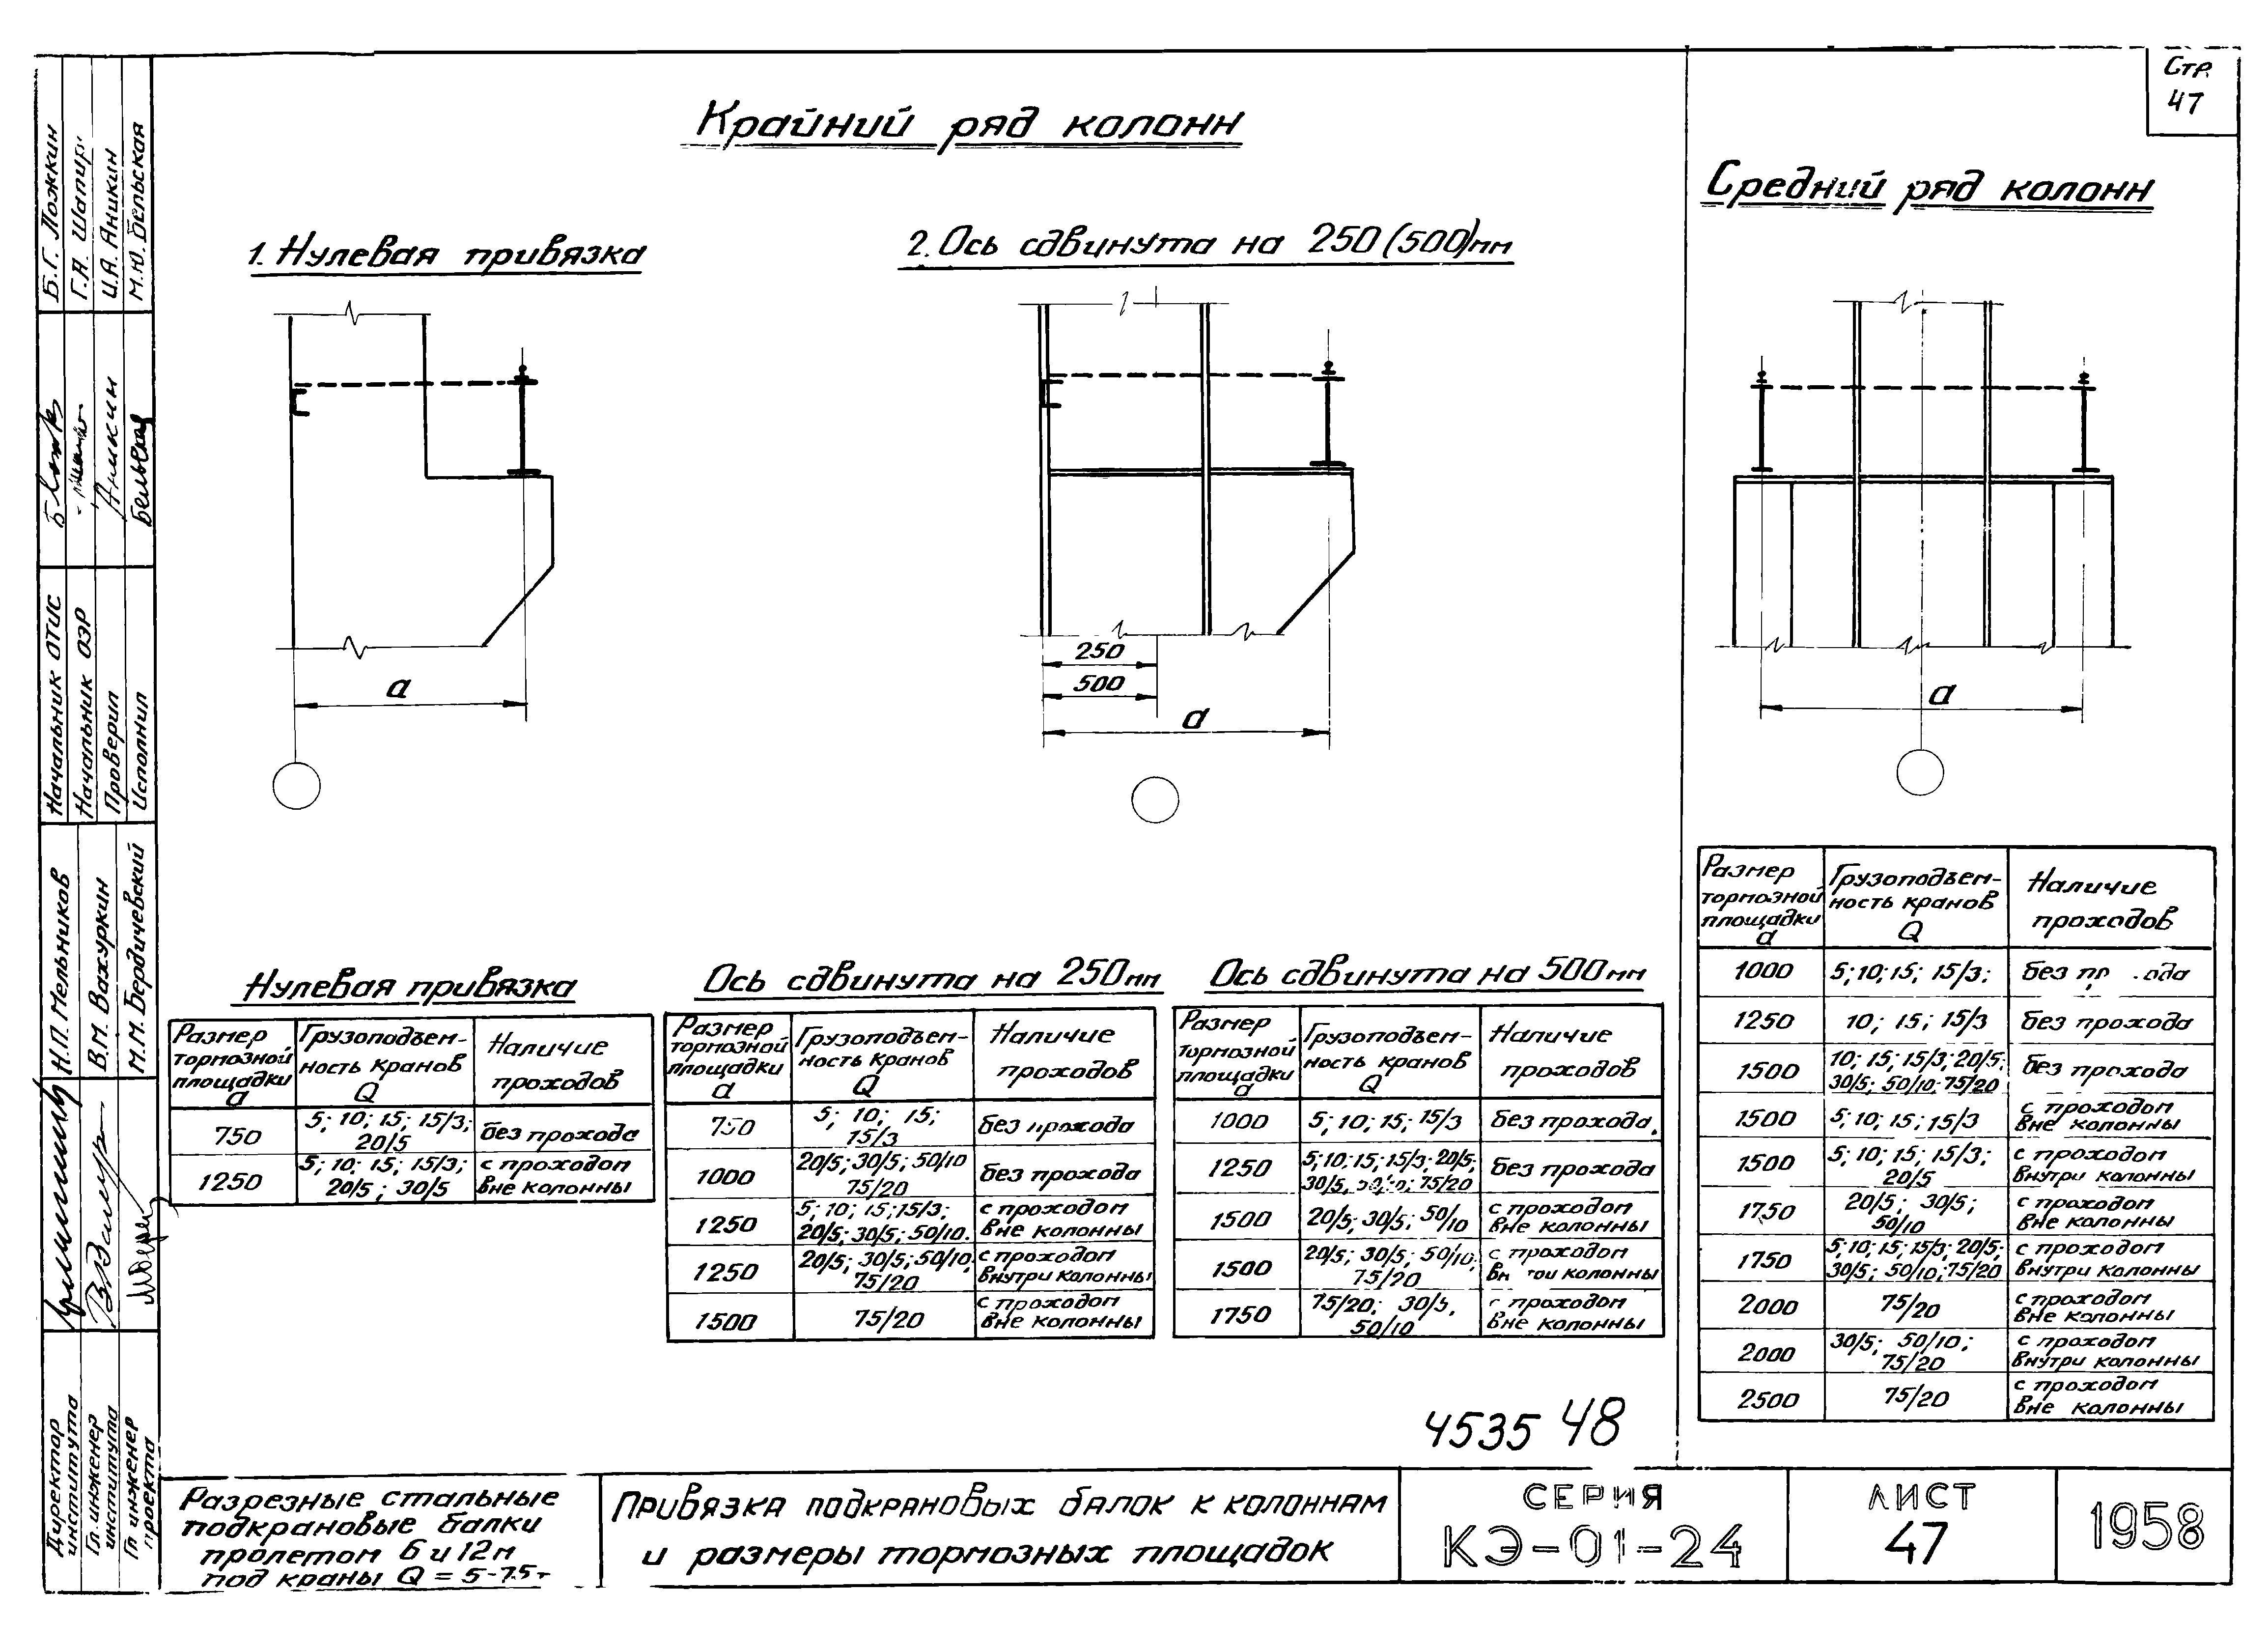 Стр.
47
Крайний ряд колонн
Средний ряд колонн
1. Нулевая привязка
2. Ось сдвинута на 250 (500) мм
а
250
500
а
а
Нулевая привязка
Размер тормозной площадки а | Грузоподъем-ность кранов Q | Наличие проходов
750 | 5; 10; 15; 15/3; 20/5 | без прохода
1250 | 5; 10; 15; 15/3; 20/5; 30/5 | с проходом вне колонны
Ось сдвинута на 250 мм
Размер тормозной площадки а | Грузоподъем-ность кранов Q | Наличие проходов
750 | 5; 10; 15; 15/3 | без прохода
1000 | 20/5; 30/5; 50/10 75/20 | без прохода
1250 | 5; 10; 15; 15/3; 20/5; 30/5; 50/10. | с проходом вне колонны
1250 | 20/5; 30/5; 50/10, 75/20 | с проходом внутри колонны
1500 | 75/20 | с проходом вне колонны
Ось сдвинута на 500 мм
Размер тормозной площадки а | Грузоподъем-ность кранов Q | Наличие проходов
1000 | 5; 10; 15; 15/3 | без прохода.
1250 | 5; 10; 15; 15/3; 20/5; 30/5, 50/10; 75/20 | без прохода
1500 | 20/5; 30/5; 50/10 | с проходом вне колонны
1500 | 20/5; 30/5, 50/10; 75/20 | с проходом колонны
1750 | 75/20; 30/5, 50/10 | с проходом вне колонны
Размер тормозной площадки а | Грузоподъем-ность кранов Q | Наличие проходов
1000 | 5; 10; 15; 15/3; | без
1250 | 10; 15; 15/3 | без прохода
1500 | 10; 15; 15/3; 20/5; 30/5; 50/10; 75/20 | без прохода
1500 | 5; 10; 15; 15/3 | с проходом вне колонны
1500 | 5; 10; 15; 15/3; 20/5 | с проходом внутри колонны
1750 | 20/5; 30/5; 50/10 | с проходом вне колонны
1750 | 5; 10; 15; 15/3; 20/5; 30/5; 50/10; 75/20 | с проходом внутри колонны
2000 | 75/20 | с проходом вне колонны
2000 | 30/5; 50/10; 75/20 | с проходом внутри колонны
2500 | 75/20 | с проходом вне колонны
4535 48
Разрезные стальные
подкрановые балки
пролетом 6 и 12 м
под краны Q = 5-75 т
Привязка подкрановых балок к колоннам
и размеры тормозных площадок
СЕРИЯ
КЭ-01-24
ЛИСТ
47
1958
Начальник ОТИС Б.Г. Ложкин
Начальник ОЭР Г.А. Шапир
Проверил Аникин И.А. Аникин
Исполнил Бельская М.Ю. Бельская
Директор института Н.П. Мельников
Гл. инженер института В.М. Вахуркин
Гл инженер проекта М.М. Бердичевский